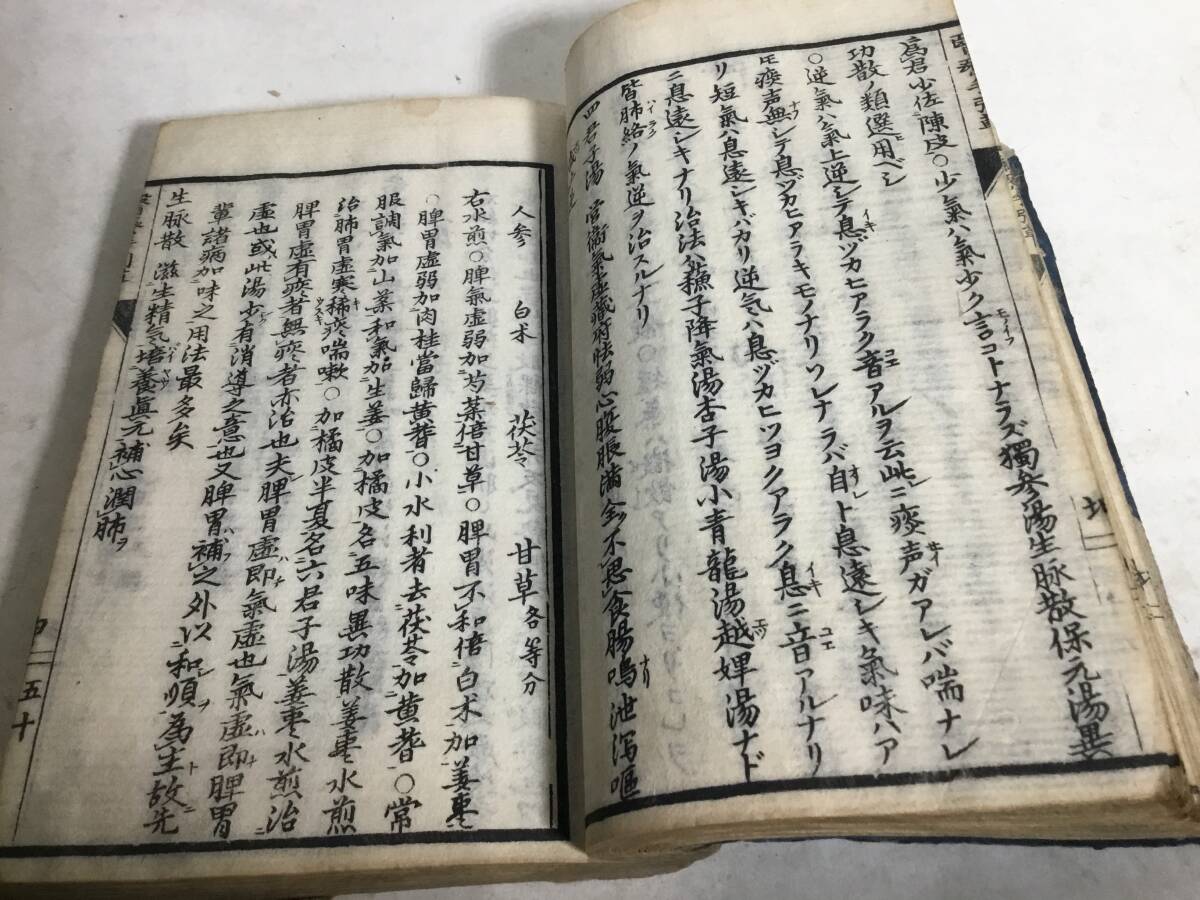 爲君少佐陳皮○少氣ハ氣少ク言コトナラズ獨參湯生脉散保元湯異
功散ノ類選用ベシ
○逆氣ハ氣上逆シテ息ヅカヒアラク音アルヲ云此ニ痰声ガアレバ喘ナレ
𪜈痰声無シテ息ヅカヒアラキモノナリワレナラバ自ト息遠シキ氣味ハア
リ短氣ハ息遠シキバカリ逆気ハ息ヅカヒツヨクアラク息ニ音アルナリ
ニ息遠シキナリ治法ハ蘓子降氣湯杏子湯小青龍湯越婢湯ナド
皆肺絡ノ氣逆ヲ治スルナリ
四君子湯 営衞氣虚臓府怯弱心腹脹満全不思食腸鳴泄瀉嘔
人参 白朮 茯苓 甘草各等分
右水煎○脾氣虚弱加芍薬倍甘草○脾胃不和倍白朮加姜棗
○脾胃虚弱加肉桂當歸黄耆○小水利者去茯苓加黄耆○常
服調氣加山薬和氣加生姜○加橘皮名五味異功散姜棗水煎
治肺胃虚寒稀痰喘嗽○加橘皮半夏名六君子湯姜棗水煎治
脾胃虚有痰者無痰者亦治也夫脾胃虚即氣虚也氣虚即脾胃
虚也或此湯少有消導之意也又脾胃補之外以和順為主故先
輩諸病加味之用法最多矣
生脉散 滋生精気培養眞元補心潤肺
五十